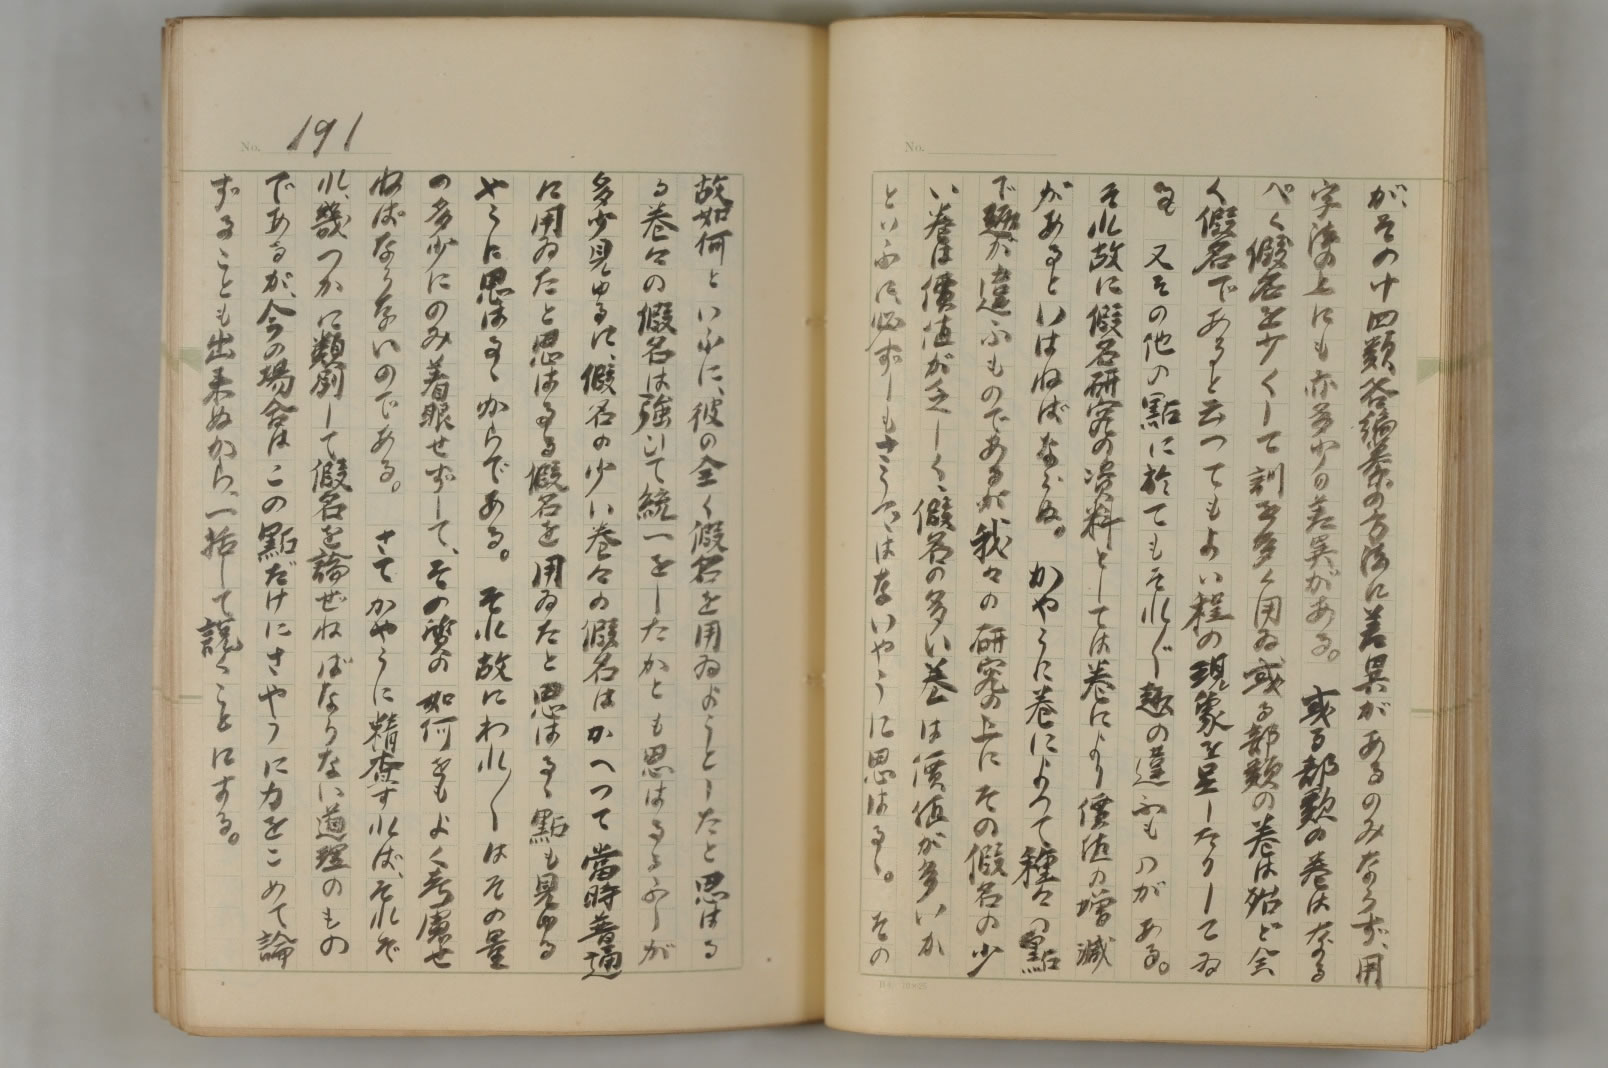 No.
が、その十四類各編纂の方法に差異があるのみならず、用
字法の上にも亦多少の差異がある。或る部類の巻はなる
べく假名を少くして訓を多く用ゐ或る部類の巻は殆ど全
く假名であると云つてもよい程の現象を呈したりしてゐ
る 又その他の點に於てもそれ〴〵趣の違ふものがある。
それ故に假名研究の資料としては巻により價値の増減
があるといはねばならぬ。かやうに巻によつて種々の點
で趣が違ふものであるが、我々の研究の上にその假名の少
い巻は價値が乏しく、假名の多い巻は價値が多いか
といふに必ずしもさうではないやうに思はるゝ。その
B4 10×25
No. 191
故如何といふに、彼の全く假名を用ゐようとしたと思はる
る巻々の假名は強ひて統一をしたかとも思はるゝふしが
多少見ゆるに、假名の少い巻々の假名はかへつて當時普通
に用ゐたと思はるる假名を用ゐたと思はるゝ點も見ゆる
やうに思はるゝからである。それ故にわれ〳〵はその量
の多少にのみ着眼せずして、その質の如何をもよく考慮せ
ねばならないのである。さてかやうに精査すれば、それぞ
れ、幾つかに類別して假名を論ぜねばならない道理のもの
であるが、今の場合はこの點だけにさやうに力をこめて論
ずることも出来ぬから、一括して説くことにする。